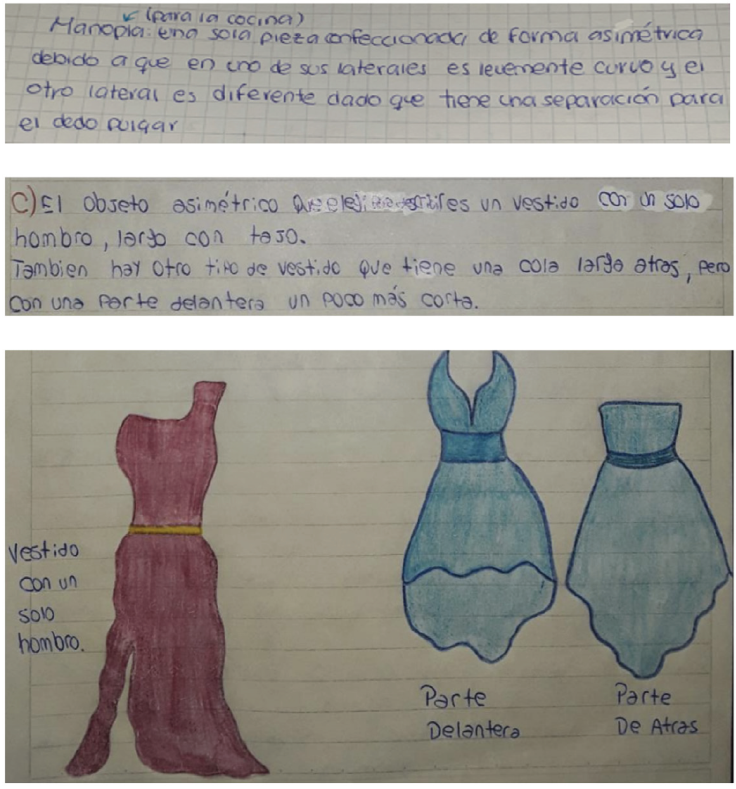 (para la cocina)
Manopla: una sola pieza confeccionada de forma asimétrica
debido a que en uno de sus laterales es levemente curvo y el
otro lateral es diferente dado que tiene una separación para
el dedo pulgar
C) El objeto asimétrico que elegí es un vestido con un solo
hombro, largo con taso.
Tambien hay otro tipo de vestido que tiene una cola larga atras, pero
con una parte delantera un poco más corta.
Vestido
con un
solo
hombro.
Parte
Delantera
Parte
De Atras